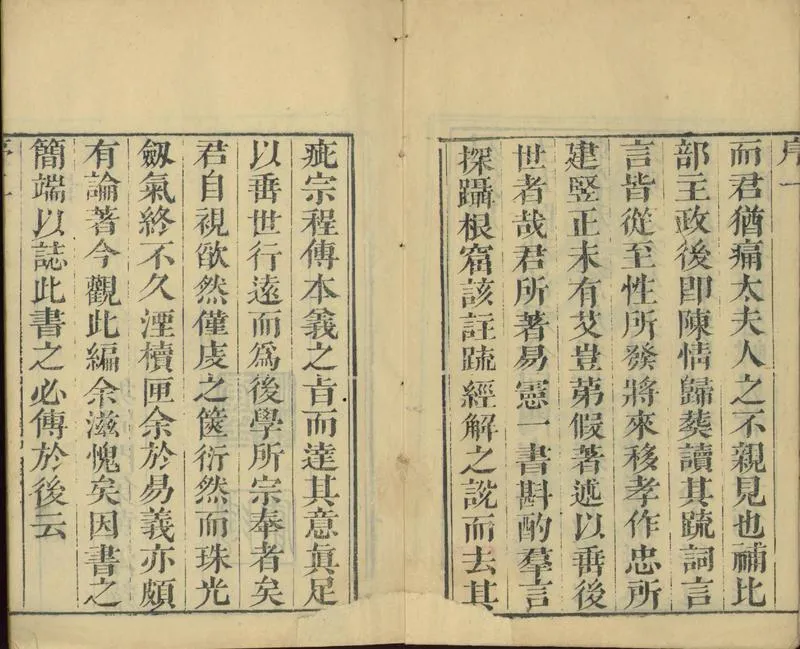 序一
而君猶痛太夫人之不親見也補比
部主政後卽陳情歸葬讀其疏詞言
言皆從至性所發將來移孝作忠所
建竪正未有艾豈第假著述以垂後
世者哉君所著易憲一書斟酌羣言
探躡根窟該註疏經解之說而去其
疵宗程傳本義之旨而達其意眞足
以垂世行遠而爲後學所宗奉者矣
君自視欿然僅庋之篋衍然而珠光
劔氣終不久湮櫝匣余於易義亦頗
有論著今觀此編余滋愧矣因書之
簡端以誌此書之必傳於後云